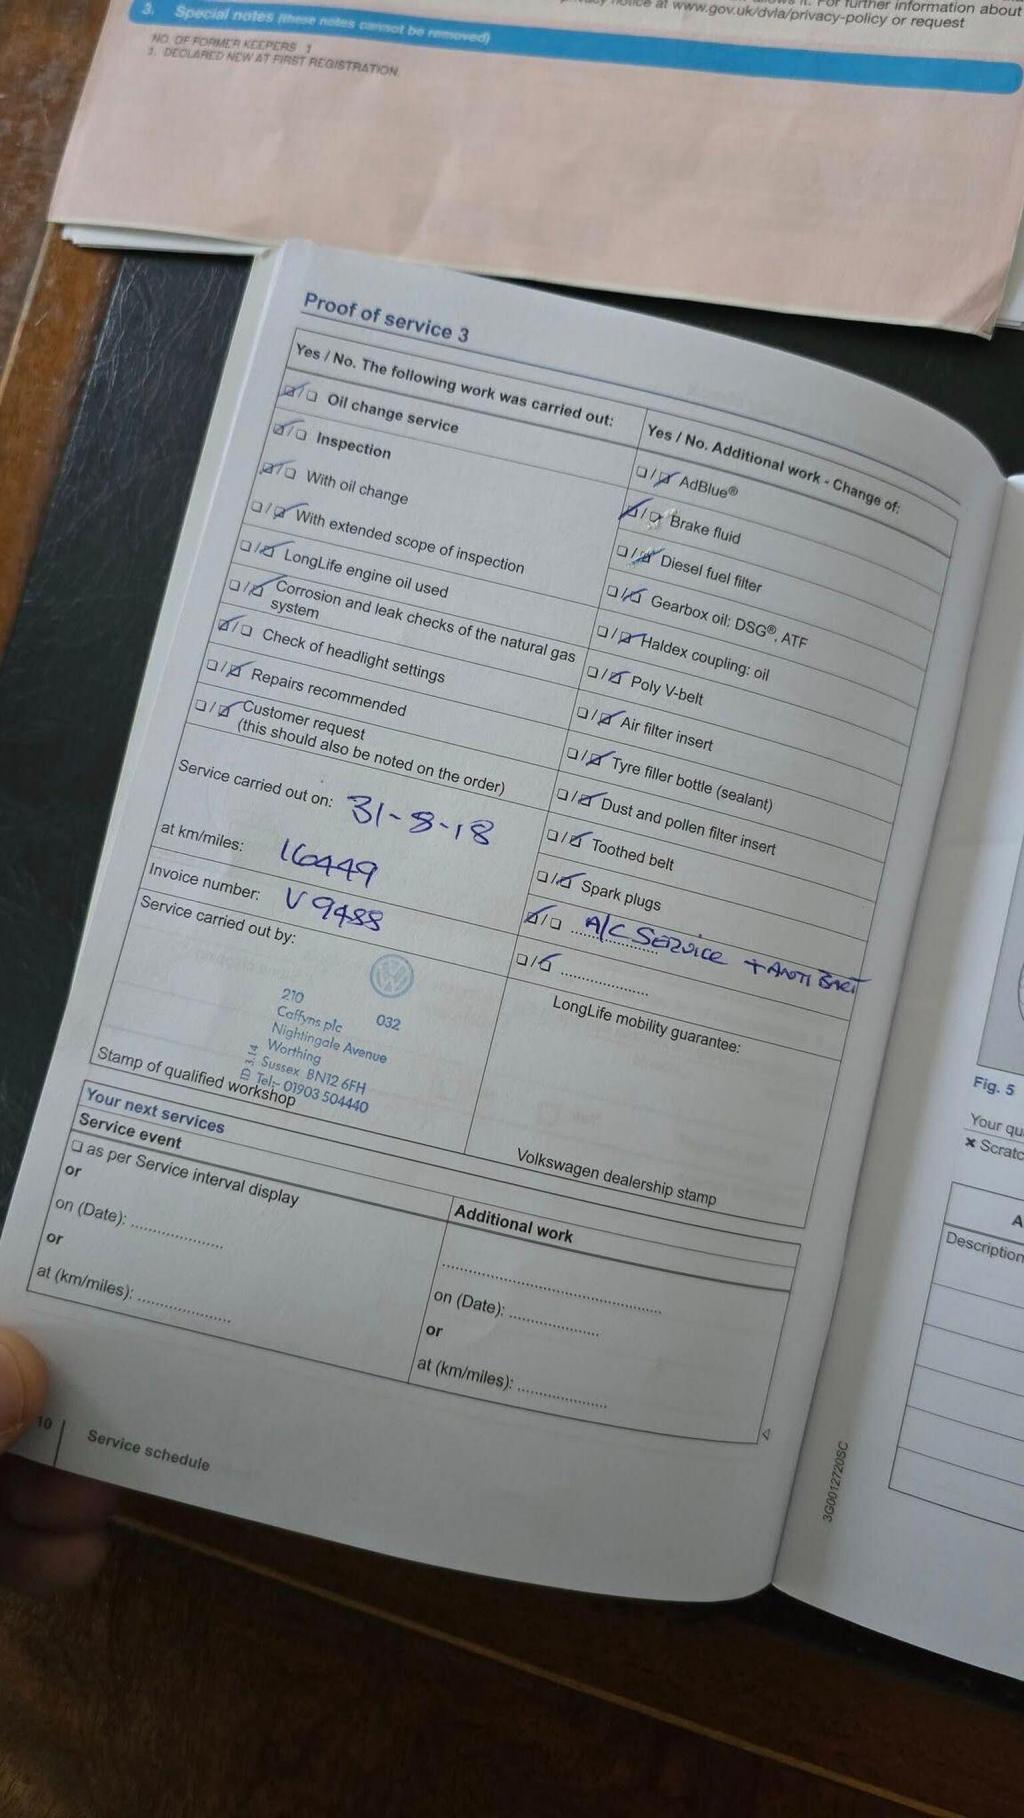 privacy notice at www.gov.uk/dvla/privacy-policy or request
it. For further information about
3. Special notes (these notes cannot be removed)
NO. OF FORMER KEEPERS 1
3. DECLARED NEW AT FIRST REGISTRATION
Proof of service 3
Yes / No. The following work was carried out:
☑/☐ Oil change service
☑/☐ Inspection
☑/☐ With oil change
☐/☑ With extended scope of inspection
☐/☑ LongLife engine oil used
☐/☑ Corrosion and leak checks of the natural gas
system
☑/☐ Check of headlight settings
☐/☑ Repairs recommended
☐/☑ Customer request
(this should also be noted on the order)
Service carried out on: 31-8-18
at km/miles: 16449
Invoice number: V9488
Service carried out by:
210
Caffyns plc 032
Nightingale Avenue
Worthing
Sussex BN12 6FH
Tel:- 01903 504440
3.14
Stamp of qualified workshop
Yes / No. Additional work - Change of:
☐/☑ AdBlue®
☑/☐ Brake fluid
☐/☑ Diesel fuel filter
☐/☑ Gearbox oil: DSG®, ATF
☐/☑ Haldex coupling: oil
☐/☑ Poly V-belt
☐/☑ Air filter insert
☐/☑ Tyre filler bottle (sealant)
☐/☑ Dust and pollen filter insert
☐/☑ Toothed belt
☐/☑ Spark plugs
☑/☐ A/C SERVICE + ANTI BACT
☐/☑ ....................
LongLife mobility guarantee:
Volkswagen dealership stamp
Your next services
Service event
☐ as per Service interval display
or
on (Date): ....................
or
at (km/miles): ....................
Additional work
................................................
on (Date): ....................
or
at (km/miles): ....................
10 Service schedule
3G0012720SC
Fig. 5
Your qu
× Scratc
A
Description